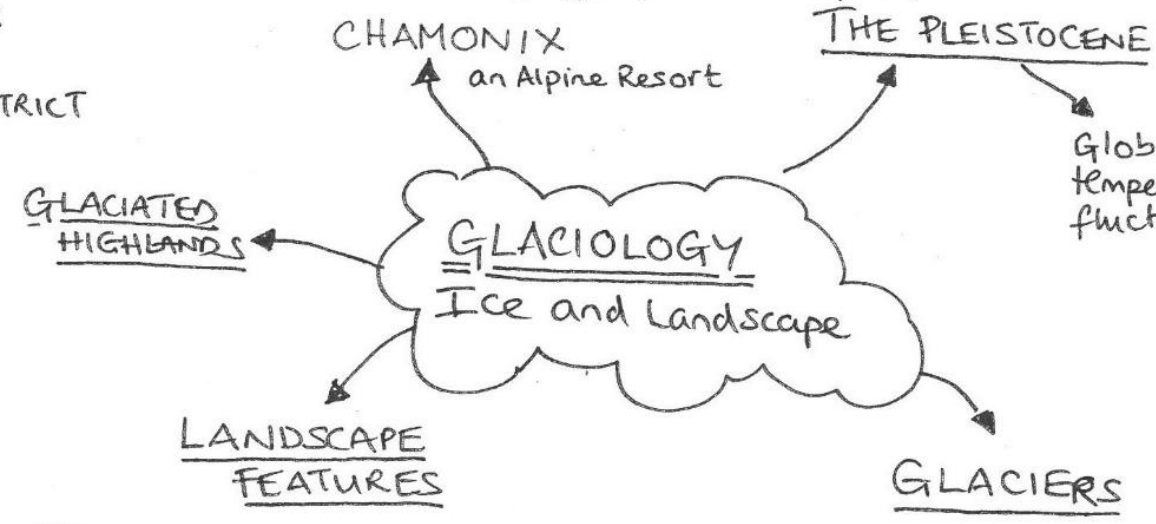 CHAMONIX
an Alpine Resort
THE PLEISTOCENE
TRICT
Glob
tempe
fluct
GLACIATED
HIGHLANDS
GLACIOLOGY
Ice and Landscape
LANDSCAPE
FEATURES
GLACIERS